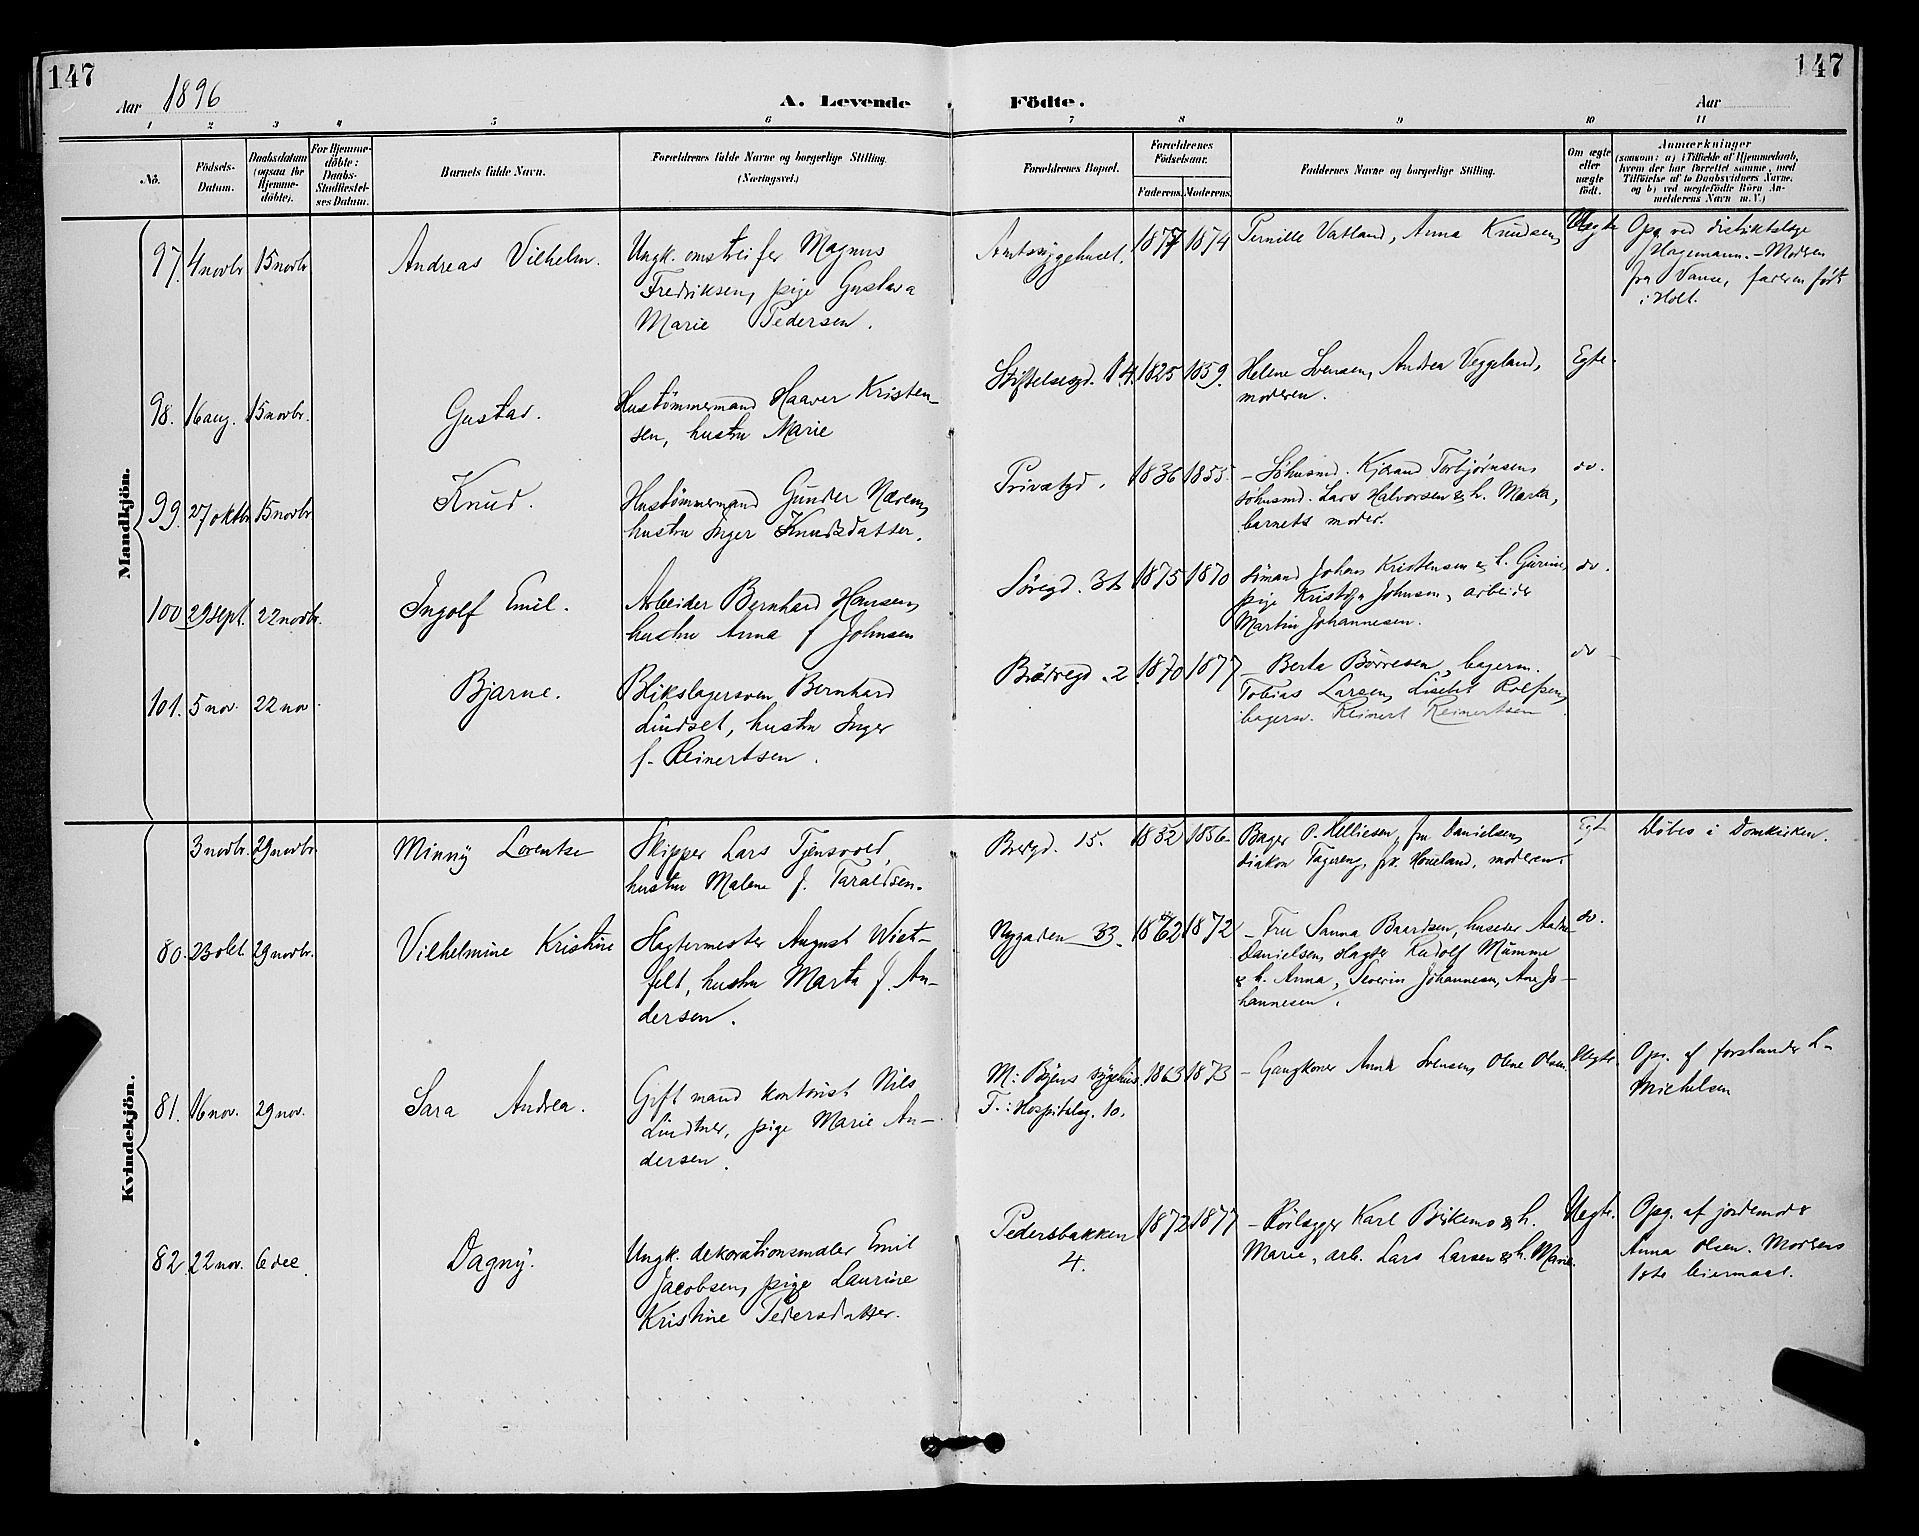 147
147
Aar 1896
A. Levende Födte.
Aar
1 2 3 4 5 6 7 8 9 10 11
No.
Födsels-Datum.
Daabsdatum (ogsaa for Hjemmedöbte).
For Hjemmedöbte: Daabs-Stadfæstelses Datum.
Barnets fulde Navn.
Forældrenes fulde Navne og borgerlige Stilling. (Næringsvei.)
Forældrenes Bopæl.
Forældrenes Födselsaar.
Faderens. Moderens.
Faddernes Navne og borgerlige Stilling.
Om ægte eller uægte födt.
Anmærkninger
(saasom: a) i Tilfælde af Hjemmedaab, hvem der har forrettet samme, med Tilföielse af to Daabsvidners Navne, og b) ved uægtefödte Börn Anmelderens Navn m. V.)
Mandkjön.
97. 4 novbr 15 novbr
Andreas Vilhelm.
Ungk. omstreifer Magnus
Fredriksen, pige Gustava
Marie Pedersen.
Amtssygehuset. 1877 1874
Pernille Vatland, Anna Knudsen,
Uegte
Opg. ved distriktslæge
Hagemann. - Moderen
fra Vanse, faderen født
i Holt.
98. 16 aug. 15 novbr.
Gustav.
Hustömmermand Haaver Kristen-
sen, hustru Marie
Stiftelsesgd. 14. 1825 1859.
Helene Svensen, Andrea Veggeland,
moderen.
Egte.
99. 27 oktbr 15 novbr
Knud.
Hustömmermand Gunder Nærem,
hustru Inger Knudsdatter.
Privatgd. 1836 1855.
- Söhusmd. Kjørand Torbjørnsen,
söhusmd. Lars Halvorsen & h. Marta,
barnets moder.
do.
100 29 sept. 22 novbr.
Ingolf Emil.
Arbeider Bernhard Hansen,
hustru Anna f Johnsen
Söregd. 36 1875 1870
sömand Johan Kristensen & h. Gurine
pige Kristofa Johnsen, arbeider
Martin Johannesen.
do.
101. 5 nov. 22 nov.
Bjarne.
Blikslagersven Bernhard
Lindset, hustru Inger
f. Reinertsen.
Brödregd. 2 1870 1877
- Berta Börresen, bagerm.
Tobias Larsen, Lisebet Rolfsen,
bagersv. Reinert Reinertsen
do
Kvindekjön.
3 novbr. 29 novbr.
Minny Lorentse
Skipper Lars Tjensvold,
hustru Malene f. Taraldsen.
Bergd. 15. 1852 1856.
Bager P. Helliesen, fru Danielsen,
diakon Tagereng, frk. Haueland, moderen.
Egte
Döbes i Domkirken.
80. 23 okt. 29 novbr.
Vilhelmine Kristine
Slagtermester August Wist-
felt, hustru Marta f. An-
dersen.
Nygaden 33. 1862 1872
- Fru Sanna Baardsen, huseier
Danielsen, slagter Rudolf Mumme
& h. Anna, Severin Johannesen, Ane Jo-
hannesen.
do.
81. 16 nov. 29 nov.
Sara Andrea.
Gift mand kontorist Nils
Lindtner, pige Marie An-
dersen.
M: Byens sygehus.
F.: Hospitalsg. 10.
1863 1873
- Gangkoner Anna Svensen, Olene Olsen
Uegte.
Opg. af forstander L.
Michelsen
82 22 nov. 6 dec.
Dagny.
Ungk. dekorationsmaler Emil
Jacobsen, pige Laurine
Kristine Pedersdatter.
Pedersbakken
4.
1872 1877
- Rörlægger Karl Birkemo & h.
Marie, arb. Lars Larsen & h. Marie.
Uegte.
Opg. af jordemoder
Anna Olsen. Moderens
1ste leiermaal.